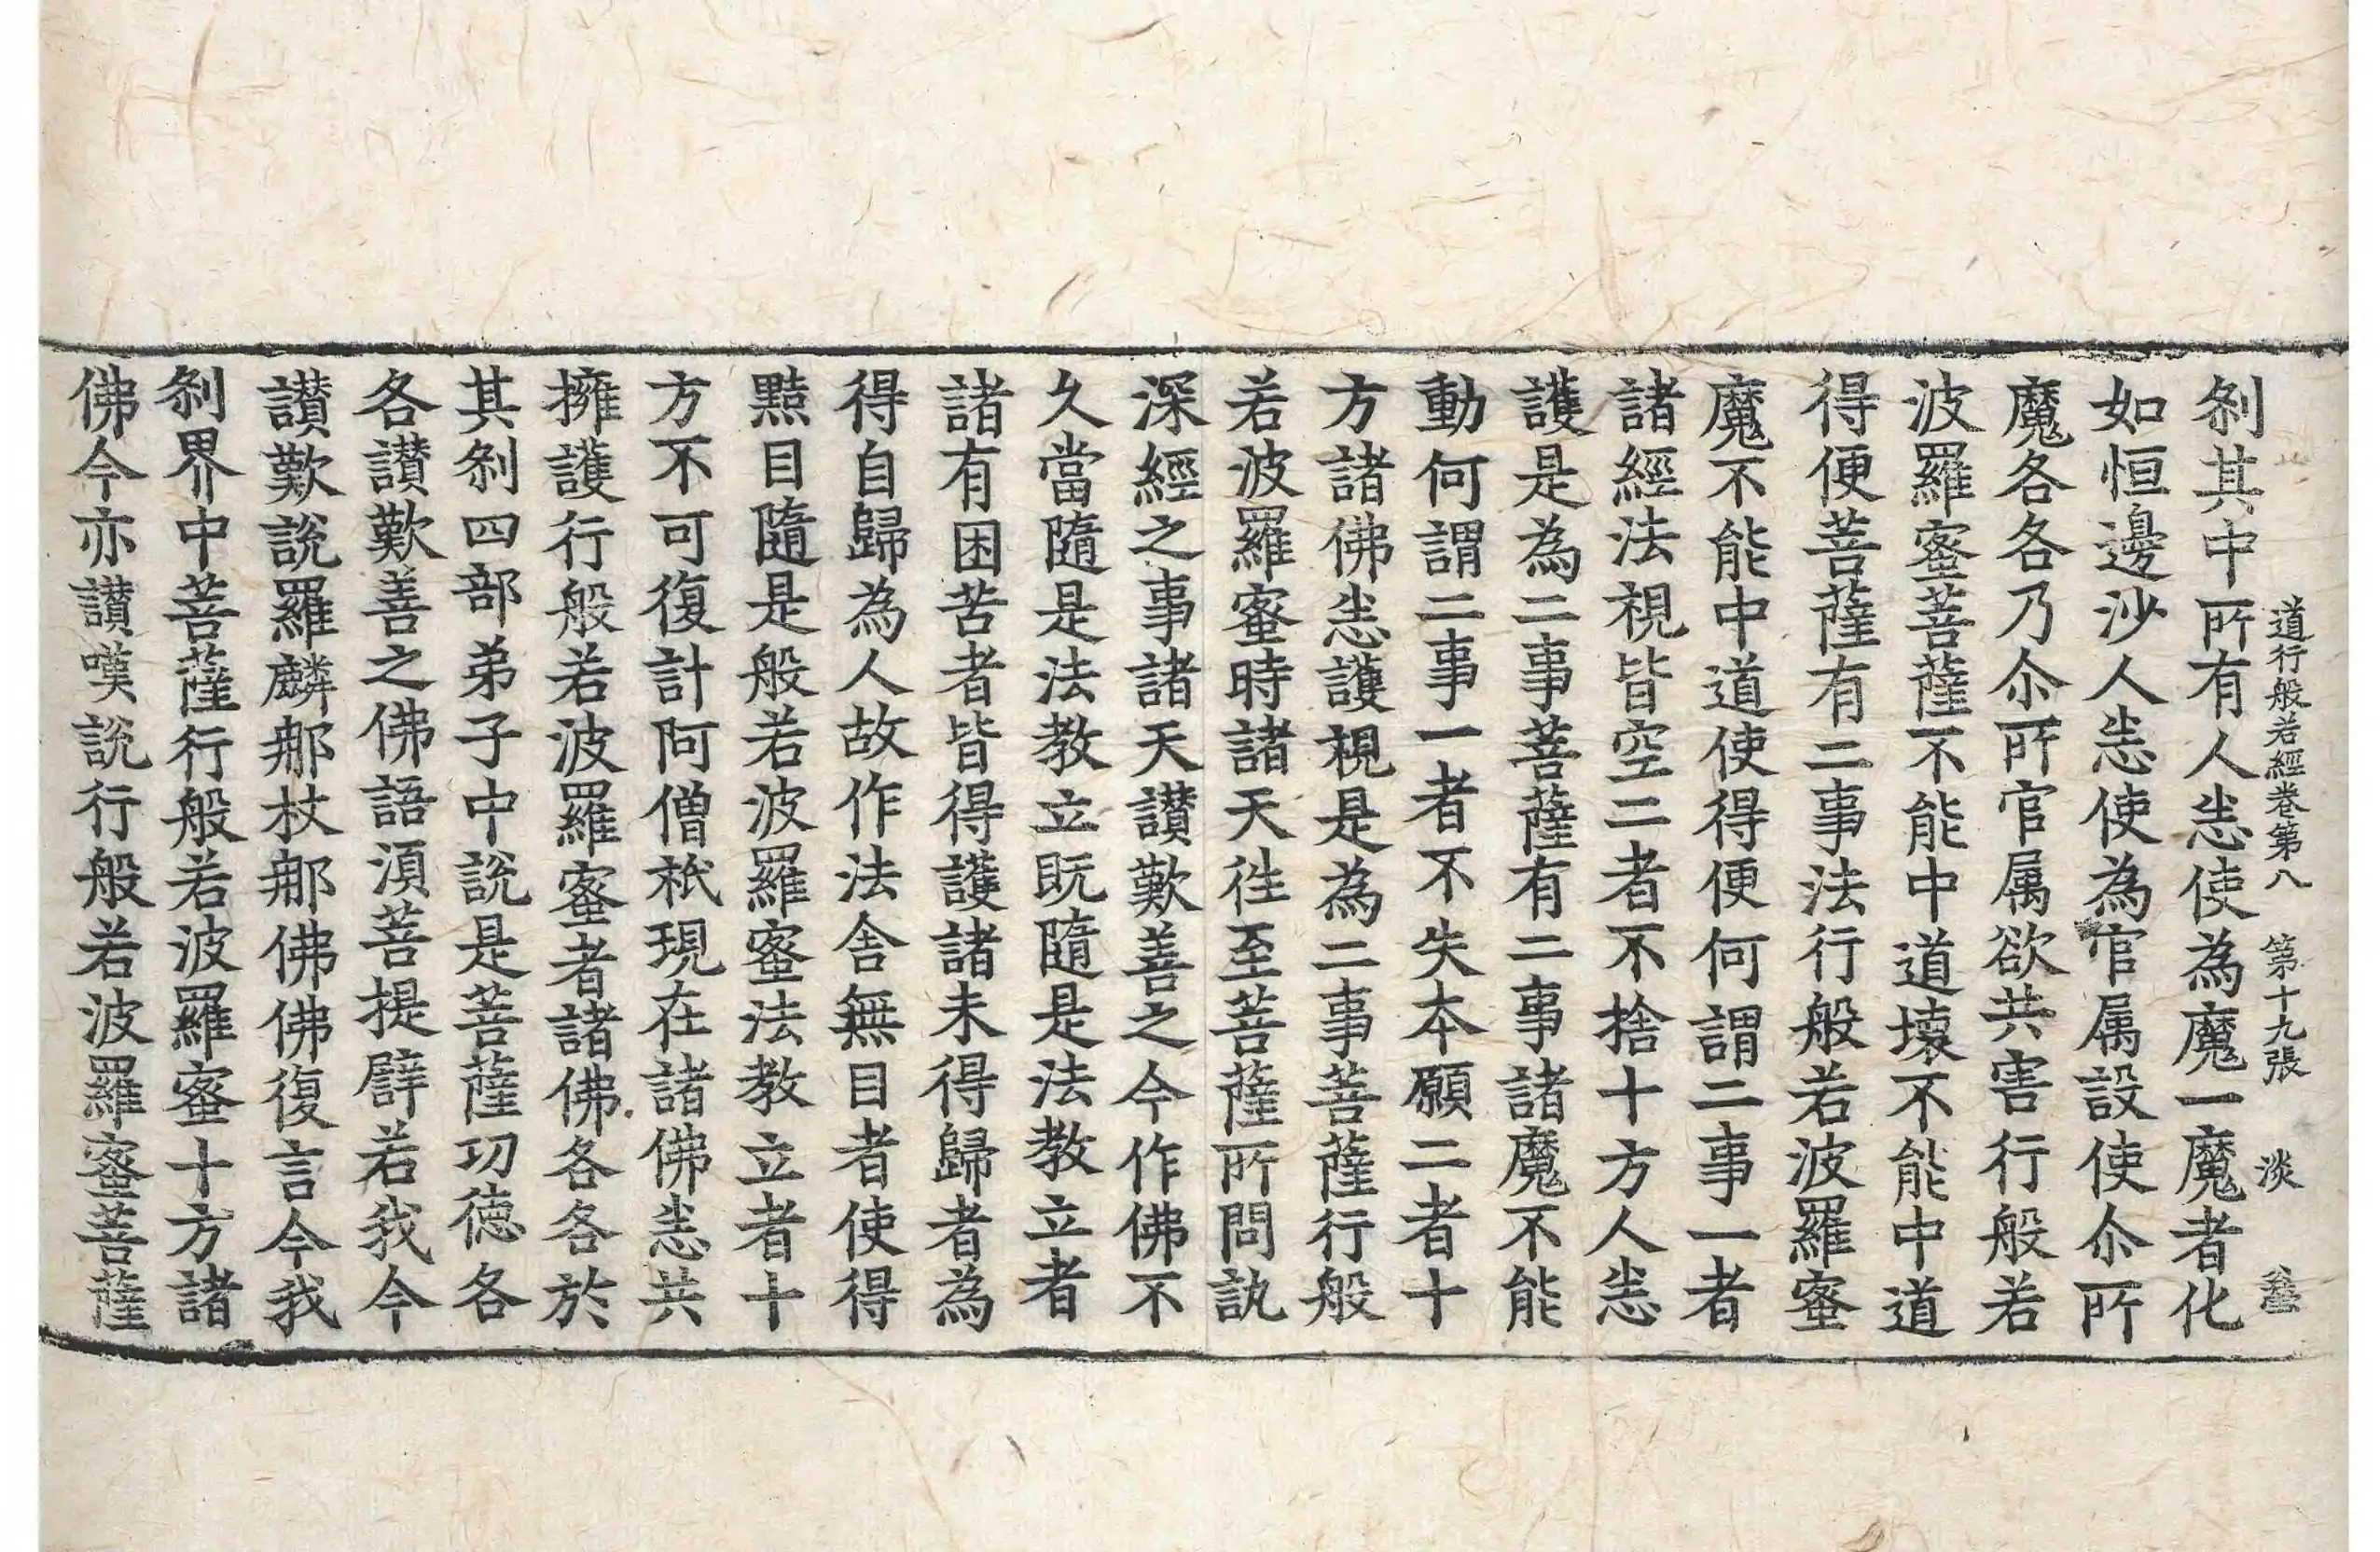 道行般若經卷第八 第十九張 淡
刹其中所有人悉使為魔一魔者化
如恒邊沙人悉使為官属設使尒所
魔各各乃尒所官属欲共害行般若
波羅蜜菩薩不能中道壞不能中道
得便菩薩有二事法行般若波羅蜜
魔不能中道使得便何謂二事一者
諸經法視皆空二者不捨十方人悉
護是為二事菩薩有二事諸魔不能
動何謂二事一者不失本願二者十
方諸佛悉護視是為二事菩薩行般
若波羅蜜時諸天往至菩薩所問訊
深經之事諸天讃歎善之今作佛不
久當隨是法教立既隨是法教立者
諸有困苦者皆得護諸未得歸者為
得自歸為人故作法舍無目者使得
黠目隨是般若波羅蜜法教立者十
方不可復計阿僧祇現在諸佛悉共
擁護行般若波羅蜜者諸佛各各於
其刹四部弟子中說是菩薩功德各
各讃歎善之佛語湏菩提譬若我今
讃歎說羅麟那杖那佛佛復言今我
刹界中菩薩行般若波羅蜜十方諸
佛今亦讃嘆說行般若波羅蜜菩薩